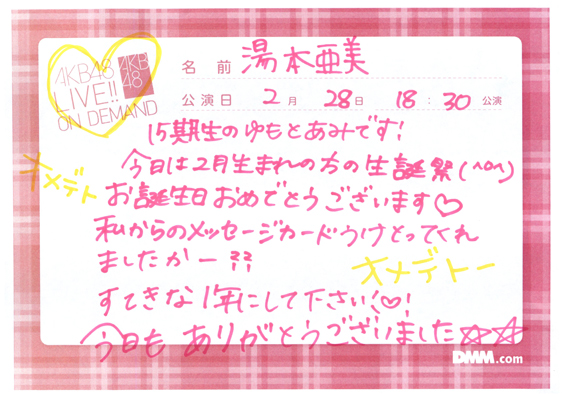 AKB48
LIVE!!
ON DEMAND
AKB
48
名前 湯本亜美
公演日 2月 28日 18:30 公演
15期生のゆもとあみです!
今日は2月生まれの方の生誕祭(^o^)
オメデト
お誕生日おめでとうございます♡
私からのメッセージカードうけとってくれ
ましたかー??
オメデトー
すてきな1年にして下さい(♡)!
今日も ありがとうございました☆☆
DMM.com